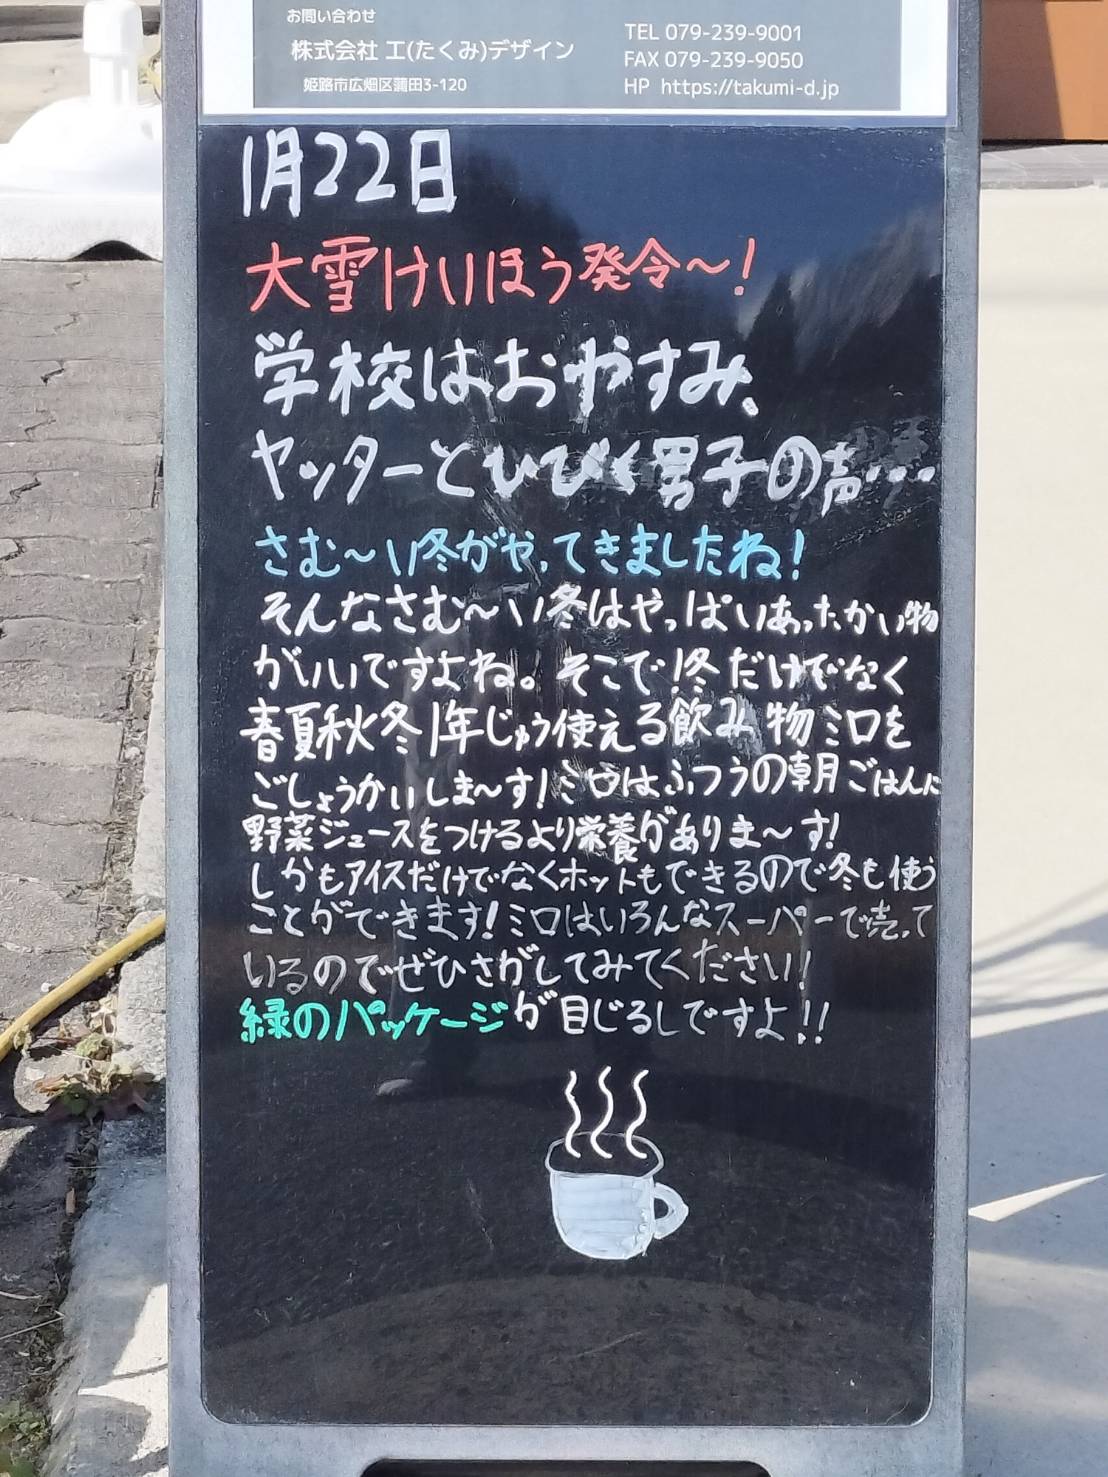 お問い合わせ
株式会社 工(たくみ)デザイン
姫路市広畑区蒲田3-120
TEL 079-239-9001
FAX 079-239-9050
HP https://takumi-d.jp
1月22日
大雪けいほう発令～!
学校はおやすみ、
ヤッターとひびく男子の声…
さむ～い冬がやってきましたね!
そんなさむ～い冬はやっぱいあったかい物
がいいですよね。そこで!冬だけでなく
春夏秋冬1年じゅう使える飲み物ミロを
ごしょうかいしま～す!ミロはふつうの朝ごはんに
野菜ジュースをつけるより栄養がありま～す!
しかもアイスだけでなくホットもできるので冬も使う
ことができます!ミロはいろんなスーパーで売って
いるのでぜひさがしてみてください!
緑のパッケージが目じるしですよ!!